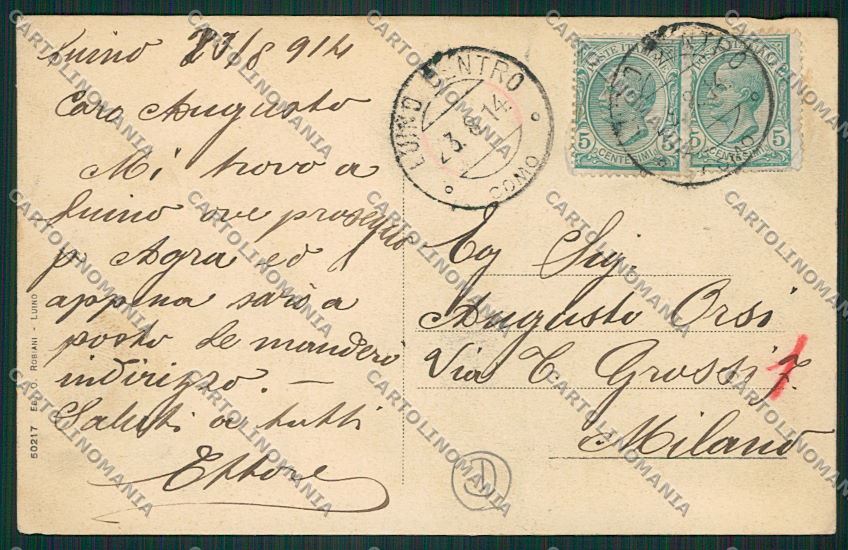 Luino 23/8 914
Caro Augusto
Mi trovo a
Luino ove proseguo
p. Agra ed
appena sarò a
posto te manderò
indirizzo. —
Saluti a tutti
Ettore
50217 Ed. O. Robiani - Luino
LUINO CENTRO
23.8.14
COMO
POSTE ITALIANE
5 5
CENTESIMI
5
CENTESIMI
Eg Sig.
Augusto Orsi
Via T. Grossi 7.
1
Milano
CARTOLINOMANIA